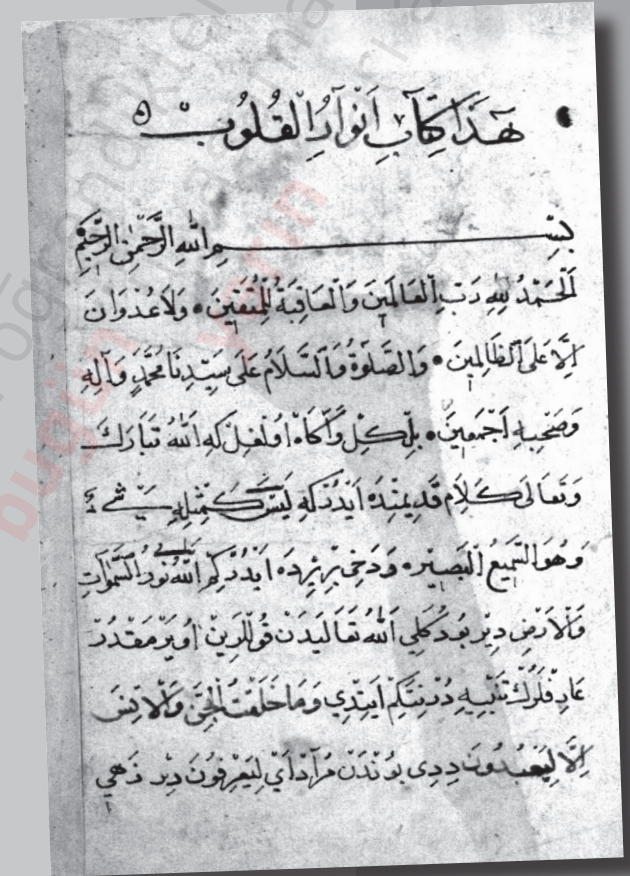 هَذَا كِتَابِ اَنْوَارُ الْقُلُوبْ
بِسْمِ اللهِ الرَّحْمٰنِ الرَّحِيمِ
اَلْحَمْدُ لِلهِ رَبِّ الْعَالَمِينَ وَالْعَاقِبَةُ لِلْمُتَّقِينَ • وَلَا عُدْوَانَ
اِلَّا عَلَى الظَّالِمِينَ • وَالصَّلٰوةُ وَالسَّلَامُ عَلَى سَيِّدِنَا مُحَمَّدٍ وَآلِهِ
وَصَحْبِهِ اَجْمَعِينَ • بِلْكِلْ وَآكَاهْ اُولْغِلْ كِه اَللهُ تَبَارَكَ
وَتَعَالَى كَلَامِ قَدِيمِنْدَه اَيْدُرْ كِه لَيْسَ كَمِثْلِهِ شَيْءٌ
وَهُوَ السَّمِيعُ الْبَصِيرُ • وَدَخِى بِرْ يِرْدَه اَيْدُرْ كِمْ اَللهُ نُورُ السَّمٰوَاتِ
وَالْاَرْضِ دِيرْ بُو دَكْلِى اَللهُ تَعَالَيدَنْ قُولْلَرِينْ اُويَرْمَقْدُرْ
عَارِفْلَرُكْ تَنْبِيهِ دُرْ نِتَكِمْ اَيِتْدِى وَمَا خَلَقْتُ الْجِنَّ وَالْاِنْسَ
اِلَّا لِيَعْبُدُونَ دِدِى بُونْدَنْ مُرَادْ اَىْ لِيَعْرِفُونَ دِرْ زَهِى
bugün
yarın